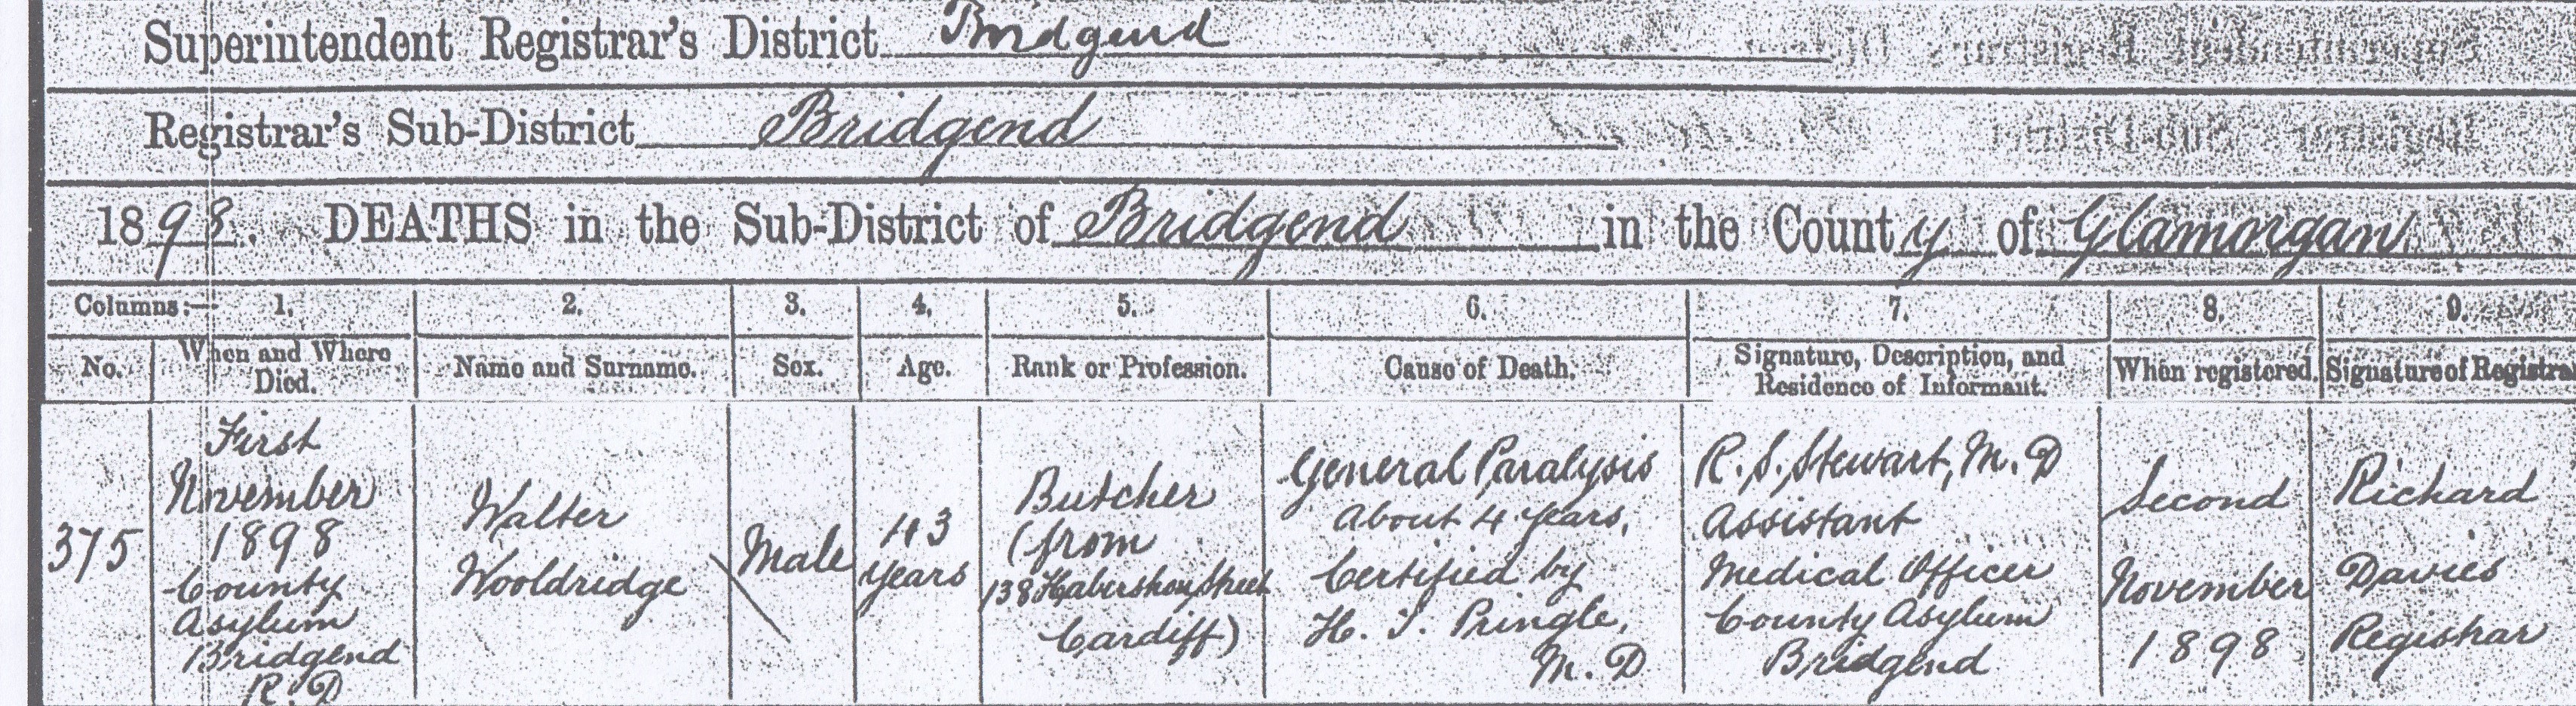 Superintendent Registrar's District Bridgend
Registrar's Sub-District Bridgend
1898. DEATHS in the Sub-District of Bridgend in the County of Glamorgan
Columns:— 1. 2. 3. 4. 5. 6. 7. 8. 9.
No.
When and Where
Died.
Name and Surname.
Sex.
Age.
Rank or Profession.
Cause of Death.
Signature, Description, and
Residence of Informant.
When registered.
Signature of Registrar
375
First
November
1898
County
Asylum
Bridgend
R.D
Walter
Wooldridge
Male
43
years
Butcher
(from
138 Habershon Street
Cardiff)
General Paralysis
About 4 years,
Certified by
H. J. Pringle,
M.D
R. S. Stewart, M.D
Assistant
Medical Officer
County Asylum
Bridgend
Second
November
1898
Richard
Davies
Registrar